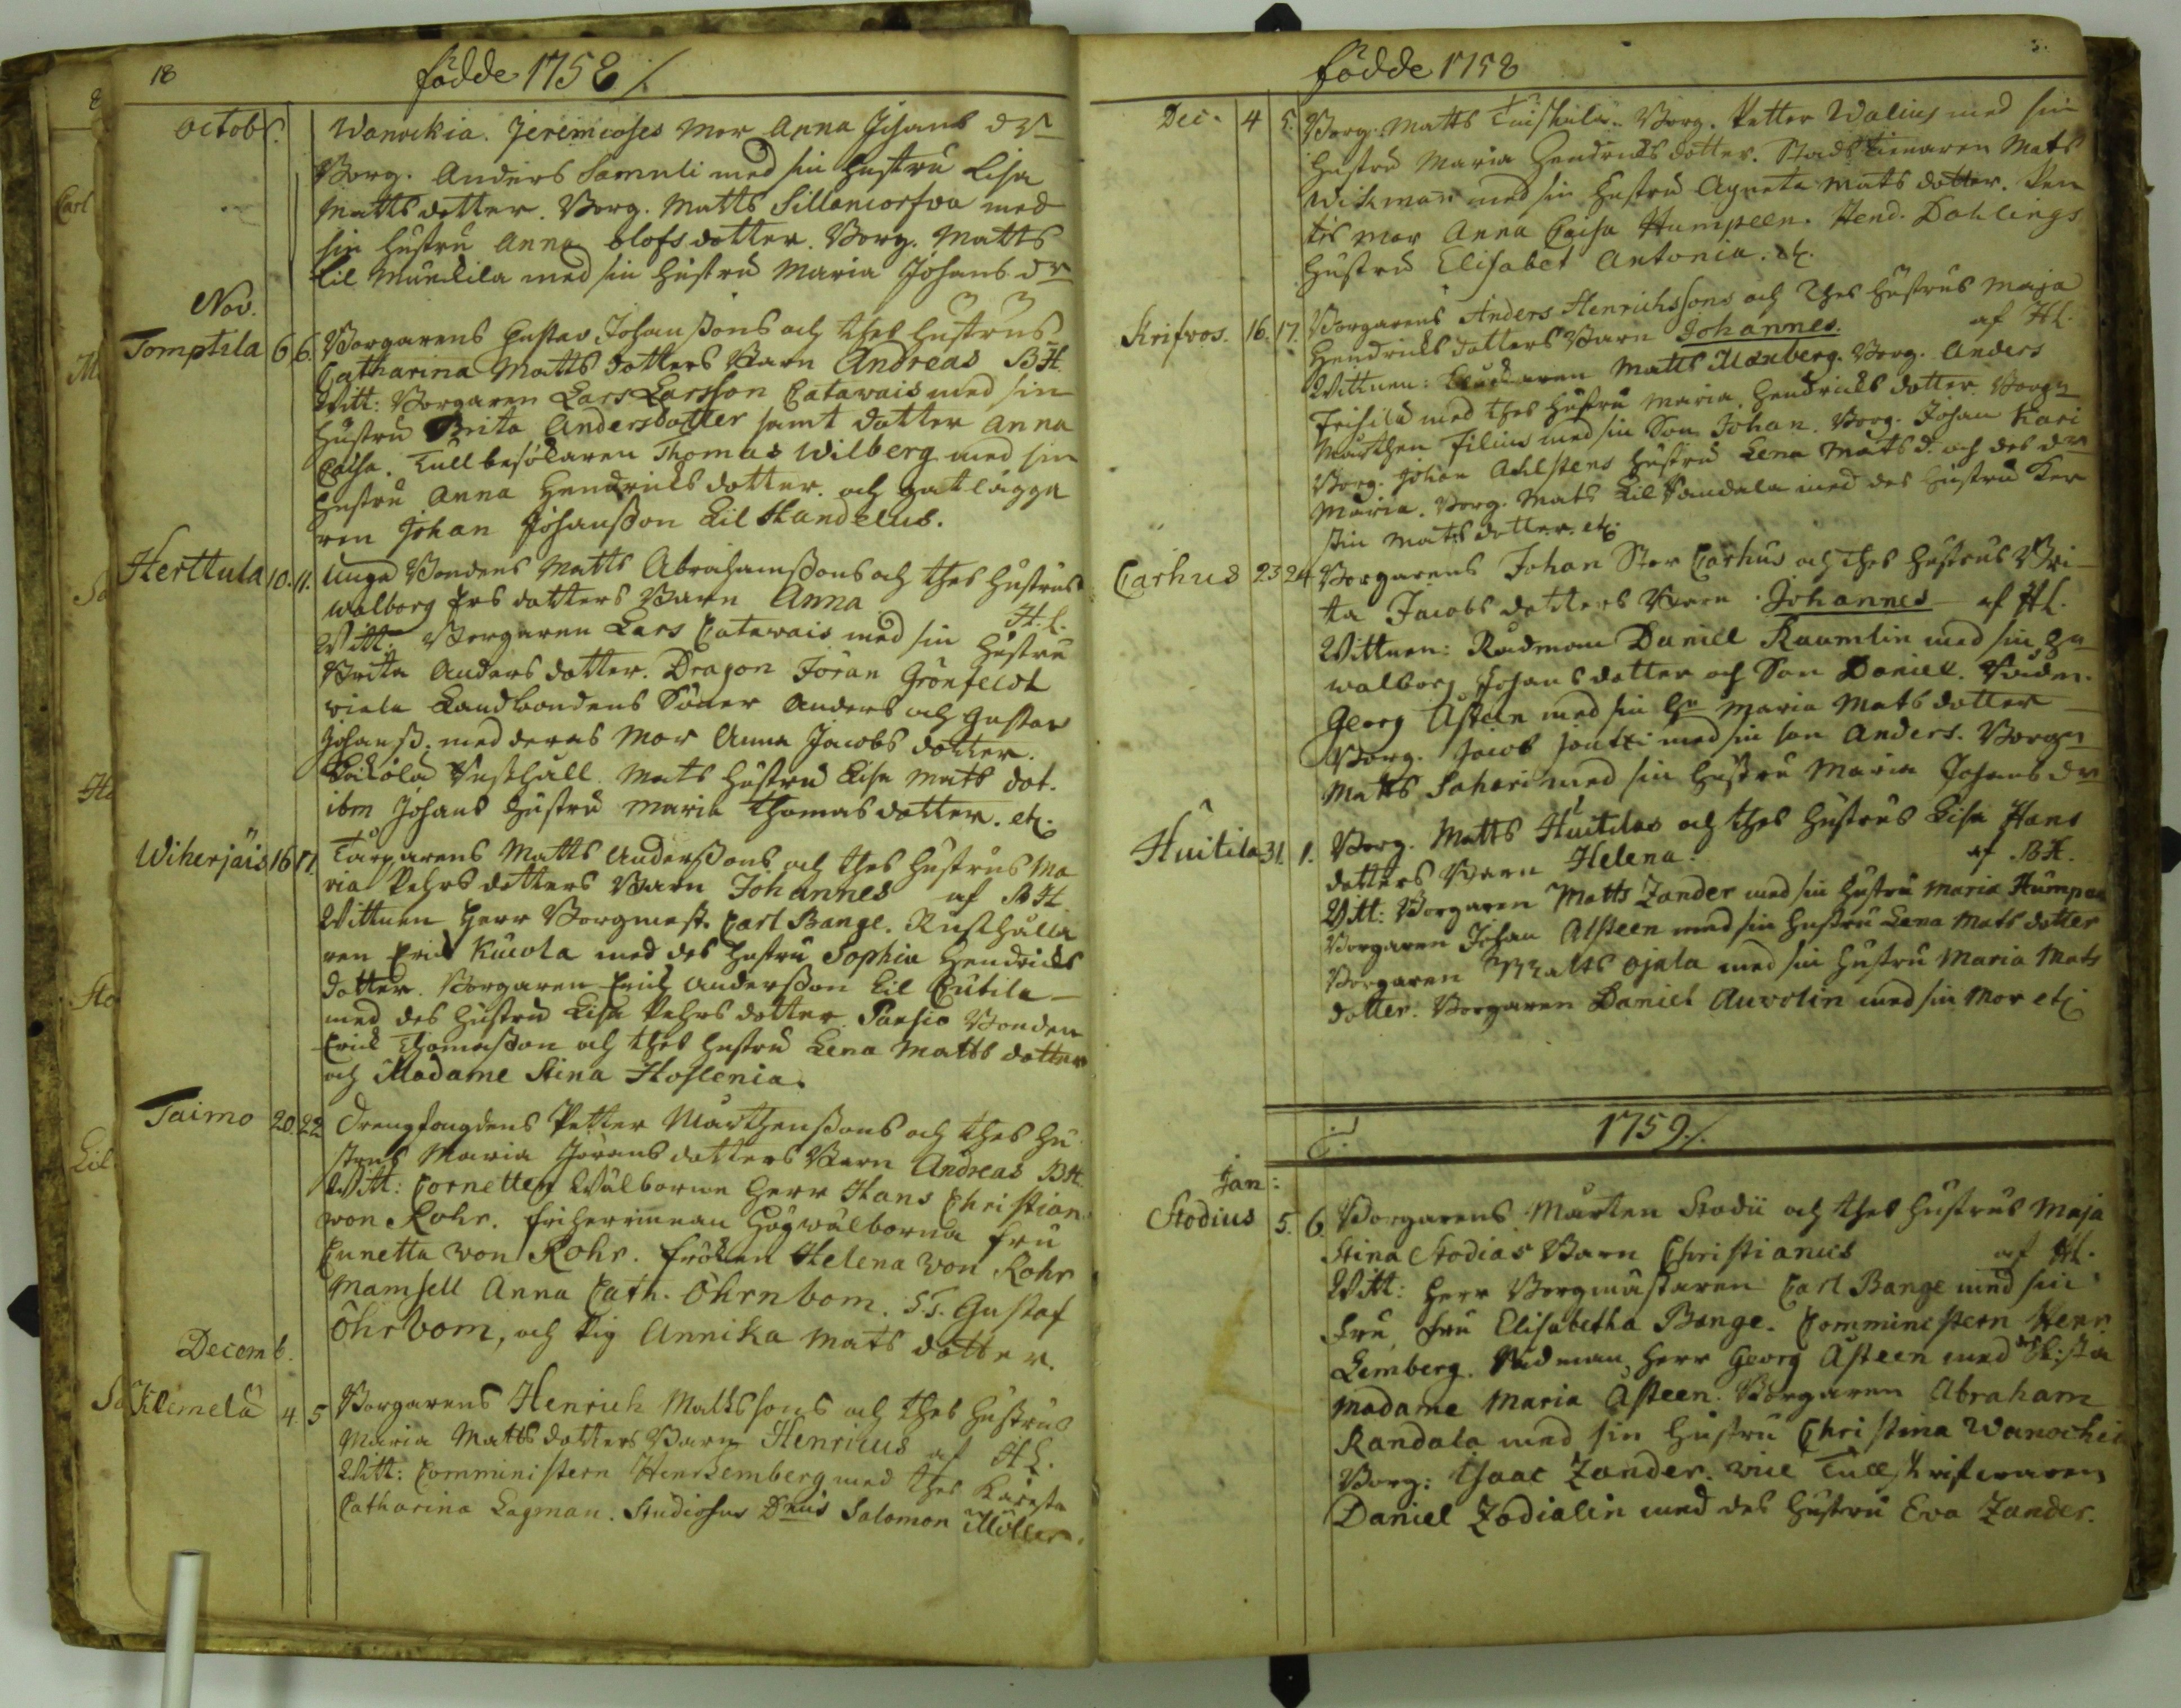 18
födde 1758 /.
Octobr.
Wanockia. Jeremiases Mor Anna Johans dr
Borg. Anders Samuli med sin hustru Lisa
Matts dotter. Borg. Matts Sillancorfva med
sin hustru Anna Olofs dotter. Borg. Matts
Lil Munkila med sin hustru Maria Johans dr
Nov.
Tomptila 6. 6. Borgarens Gustav Johanssons och thes hustrus
Catharina Matts dotters Barn Andreas BH.
Witt: Borgaren Lars Larsson Catawais med sin
hustru Brita Andersdotter samt dotter Anna
Caisa. Tullbesökaren Thomas Wilberg med sin
hustru Anna Hendricks dotter och gatlägga
ren Johan Johansson Lil Handelus.
Herttula 10. 11. unga Bondens Matts Abrahamssons och thes hustrus
Walborg Ers dotters Barn Anna H.L.
Witt: Borgaren Lars Catawais med sin hustru
Brita Anders dotter. Dragon Jöran Grönfeldt
Landbondens Söner Anders och Gustav
Johanss. med deras Mor Anna Jacobs dotter.
Mats hustru Lisa Mats dot.
ibm Johans hustru Maria Thomas dotter. etc.
Wiherjäis 16 17. Matts Anderssons och thes hustrus Ma
ria Pehrs dotters Barn Johannes af BH
Wittnen Herr Borgmest. Carl Bange. Rusthålla
ren Erick Kuwola med des hustru Sophia Hendricks
dotter. Borgaren Erich Andersson Lil Cutila
med des hustru Lisa Pehrs dotter. Paesio Bonden
Erick Thomasson och thes hustru Lena Matts dotter
och Madame Stina Hoslenia.
Taimo 20. 22 Drengfougdens Petter Mårthenssons och thes hu
strus Maria Jörans dotters Barn Andreas BH.
Witt: Cornetten Wälborne Herr Hans Christian
von Rohr. Friherrinnan Högwälborna Fru
Cunetta von Rohr. fröken Helena von Rohr
Mamsell Anna Cath. Öhrnbom. S.S. Gustaf
Öhrbom, och Pig Annika Mats dotter.
Decemb.
Klemelä 4. 5 Borgarens Henrich Mattssons och thes hustrus
Maria Matts dotters Barn Henricus af HL.
Witt: Comministern Henr Lemberg med thes Käresta
Catharina Lagman. Studiosus Dnus Salomon Möller.
födde 1758
Dec. 4 5. Borg. Matts Tuiskula. Borg. Petter Walius med sin
hustru Maria Hendricks dotter. Stads tienaren Mats
Wikman med sin hustru Agneta Mats dotter. Pen
tis Mor Anna Caisa Humpeen. Hend. Dahlings
hustru Elisabet Antonia. etc.
Krifvos. 16. 17. Borgarens Anders Henrichssons och thes hustrus Maja
Hendricks dotters Barn Johannes. af HL.
Wittnen: Matts Maxberg. Borg. Anders
med thes hustru Maria Hendricks dotter. Borgn
Mårthen Filius med sin Son Johan. Borg. Johan Kari
Borg. Johan Ahlstens hustru Lena Mats d. och des dr
Maria. Borg. Mats Lil Sandala med des hustru Ker
stin Mats dotter. etc.
Carhus 23 24 Borgarens Johan Stor Carhus och thes hustrus Bri
ta Jacobs dotters Barn Johannes af HL.
Wittnen: Rådman Daniel Raumlin med sin hu
Walborg Johans dotter och Son Daniel. Rådm.
Georg Åsteen med sin hu Maria Mats dotter
Borg. Jacob Joutzi med sin son Anders. Borgn
Matts Sahari med sin hustru Maria Johans dr
Huitila 31. 1. Borg. Matts Huitilas och thes hustrus Lisa Hans
dotters Barn Helena. af BH.
Witt: Borgaren Matts Zander med sin hustru Maria Humpeen
Borgaren Johan Alsteen med sin hustru Lena Mats dotter
Borgaren Matts Ojala med sin hustru Maria Mats
dotter. Borgaren Daniel Auvolin med sin Mor etc
1759./.
Jan:
Stodius 5. 6. Borgarens Mårten Stodii och thes hustrus Maja
Stina Stodias Barn Christianus af HL.
Witt: Herr Borgmästaren Carl Bange med sin
Fru, Fru Elisabetha Bange. Comministern Henr.
Lemberg. Rådman Herr Georg Åsteen med
Madame Maria Åsteen. Borgaren Abraham
Randala med sin hustru Christina Wanochia
Borg: Isaac Zander. vice Tullskrifwaren
Daniel Zodialin med des hustru Eva Zander.